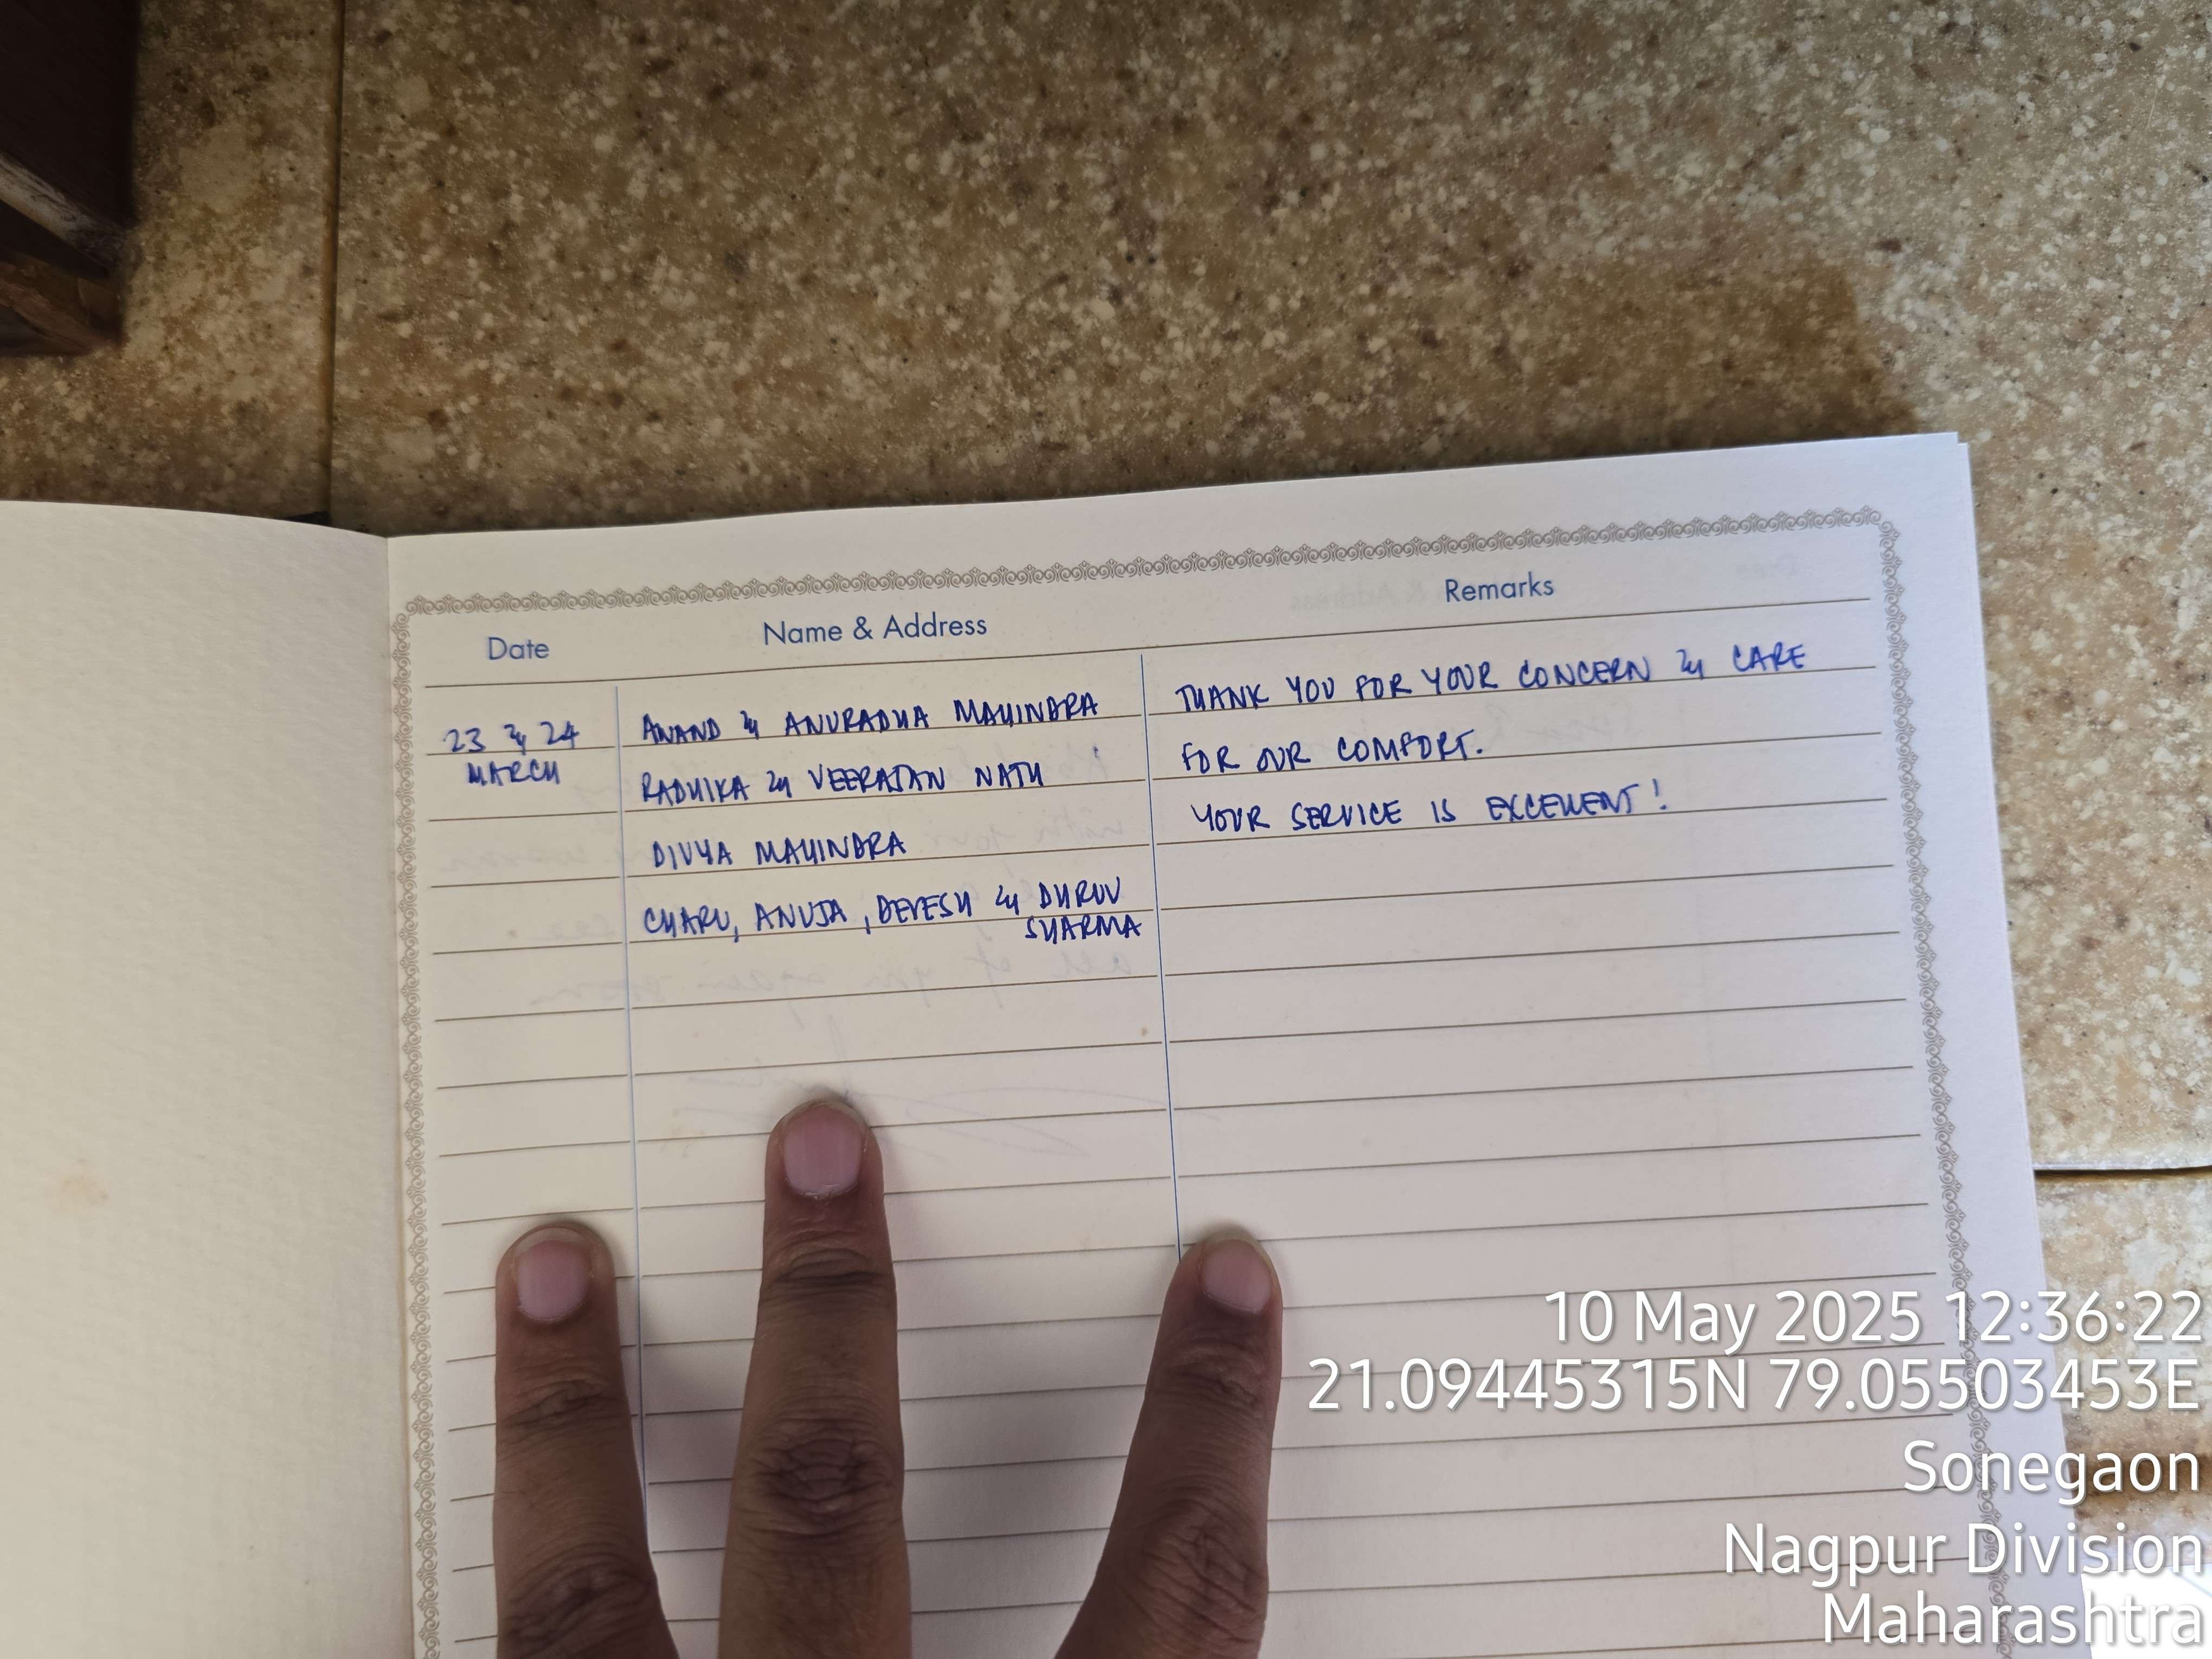 Date
Name & Address
Remarks
23 & 24
MARCH
ANAND & ANURADHA MAHINDRA
RADHIKA & VEERAJAN NATH
DIVYA MAHINDRA
CHARU, ANUJA, DEVESH & DHRUV
SHARMA
THANK YOU FOR YOUR CONCERN & CARE
FOR OUR COMFORT.
YOUR SERVICE IS EXCELLENT!
10 May 2025 12:36:22
21.09445315N 79.05503453E
Sonegaon
Nagpur Division
Maharashtra